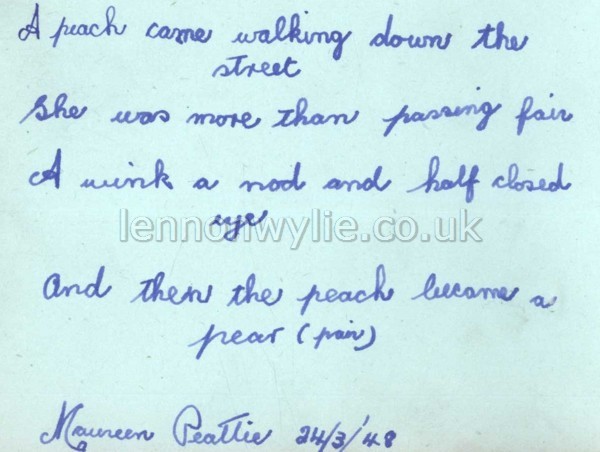 A peach came walking down the
street
She was more than passing fair
A wink a nod and half closed
eye
lennonwylie.co.uk
And then the peach became a
pear (pair)
Maureen Peattie 24/3/'48